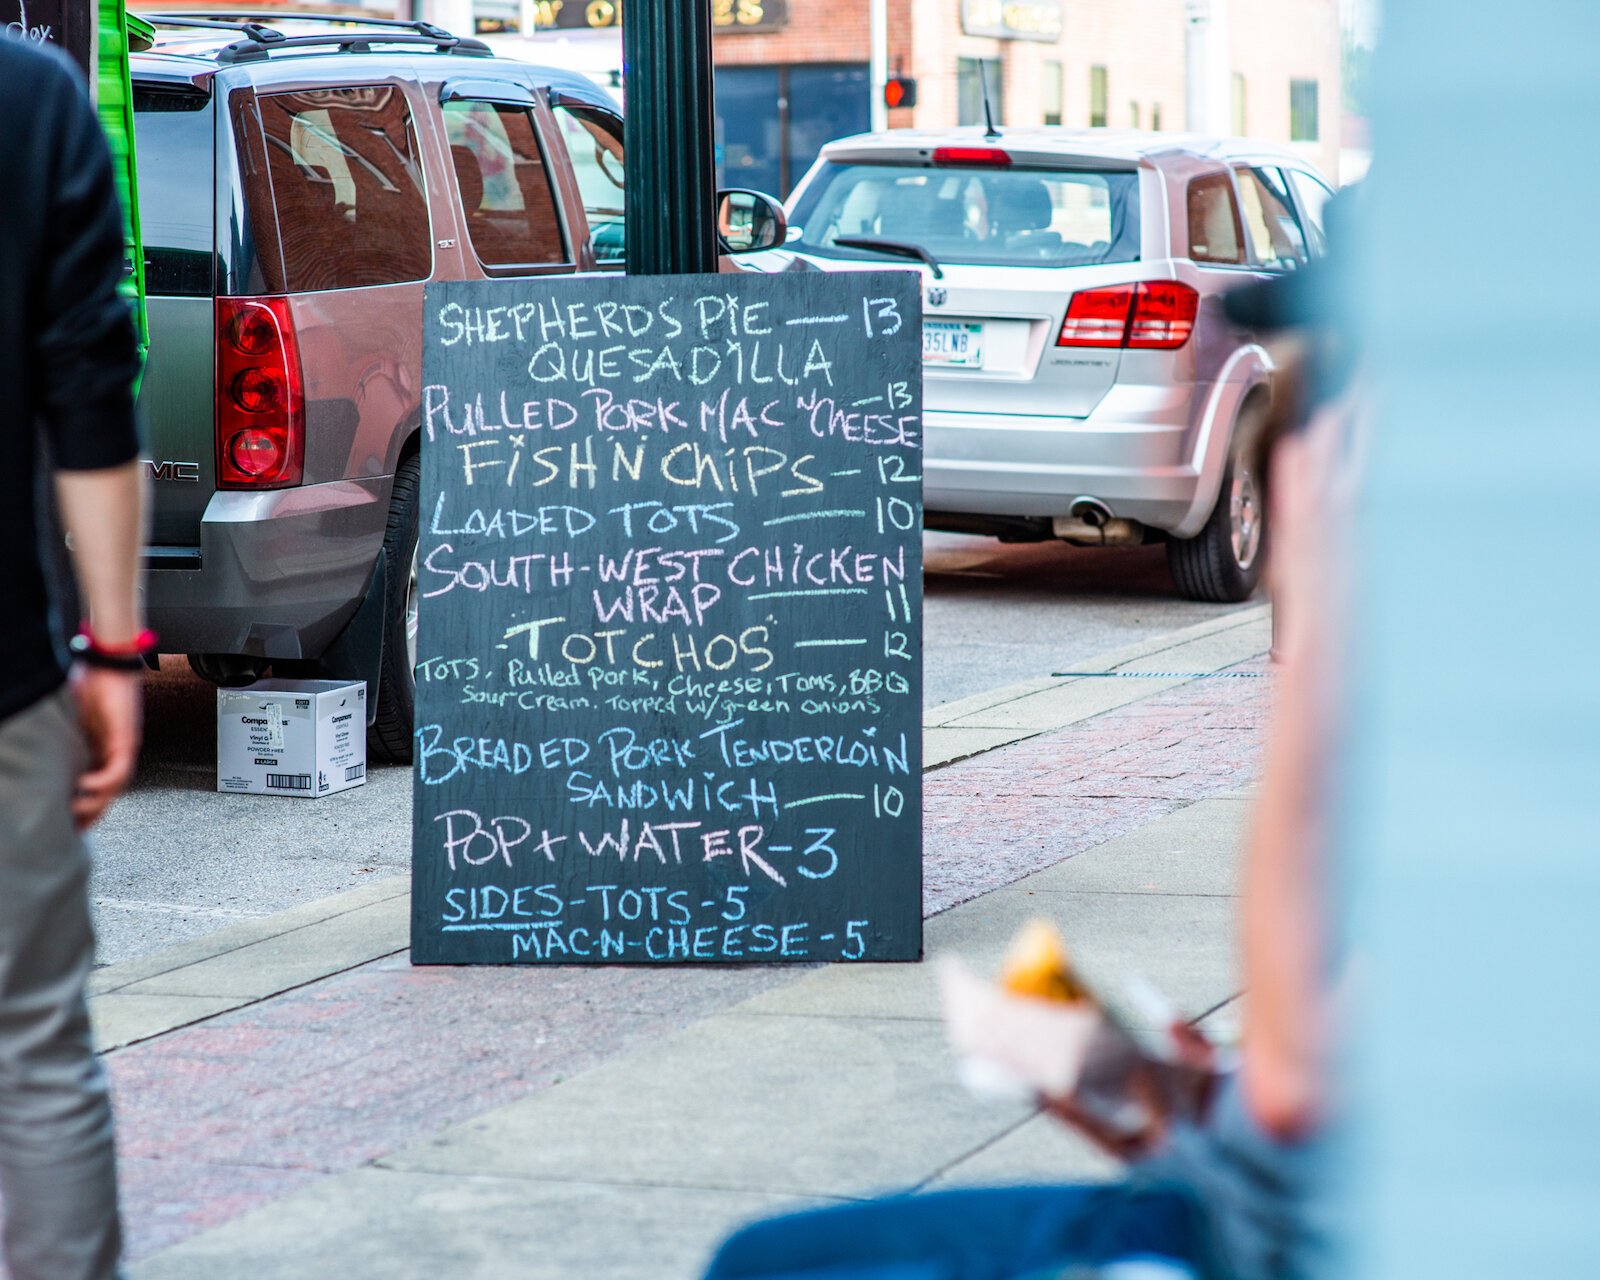 Day.
SHEPHERD'S PIE — 13
QUESADILLA
PULLED PORK MAC 'N CHEESE — 13
FISH 'N' CHIPS — 12
LOADED TOTS — 10
SOUTH-WEST CHICKEN
WRAP 11
"TOTCHOS" — 12
TOTS, Pulled Pork, Cheese, Toms, BBQ
Sour Cream. Topped w/green onions
BREADED PORK TENDERLOIN
SANDWICH — 10
POP + WATER - 3
SIDES - TOTS - 5
MAC-N-CHEESE - 5
35LNB
JOURNEY
MC
SLT
ESSEN
Vinyl G
POWDER FREE
X-LARGE